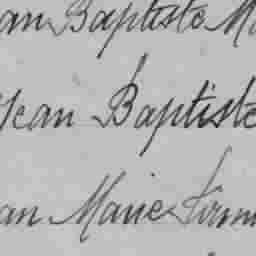 an Baptiste Ma
Jean Baptiste
an Marie Firm